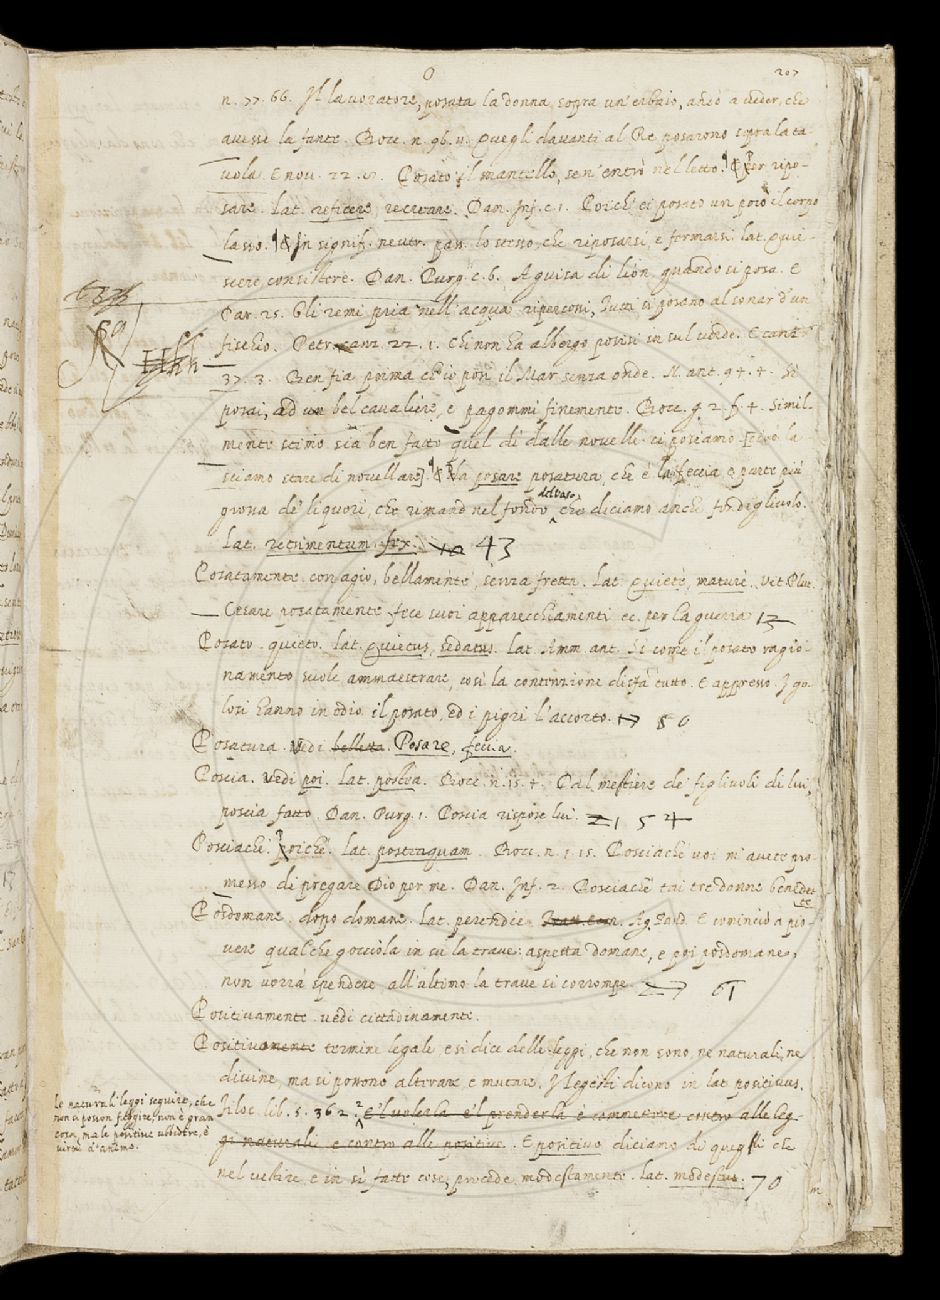 207
n. 77. 66. Il lavoratore, posata la donna, sopra un erbaio, andò a veder, che
avesse la fante. Bocc. n. 96. 11. Quegli davanti al Re posarono sopra la ta-
vola. E nov. 22. Posato il mantello, sen' entrò nel letto. ¶ & Per ripo-
sare. Lat. reficere, recreare. Dan. Inf. c. 1. Poichè ei posato un poco il corpo
lasso. ¶ & In signif. neutr. pass. lo stesso, che riposarsi, e fermarsi. lat. quie-
scere, consistere. Dan. Purg. c. 6. A guisa di lion, quando si posa. E
Par. 25. Gli remi pria nell' acqua ripercossi, Tutti si posano al sonar d'un
fischio. Petr. canz. 22. 1. Chi non ha albergo posisi in sul verde. E canz.
37. 3. Ben fia prima ch'io posi il Mar senza onde. N. ant. 94. 4. Si
posai, ad un bel cavaliere, e pagommi finemente. Bocc. g. 2. f. 4. Simil-
mente stimo sia ben fatto quel dì dalle novelle ci posiamo [cioè la-
sciamo stare di novellare]. ¶ & Da posare posatura, che è la feccia e parte più
grossa de' liquori, che rimane nel fondo del vaso, che diciamo anche fondigliuolo.
Lat. retrimentum. fex. 43
Posatamente. con agio, bellamente, senza fretta. Lat. quiete, mature. Vit. Plut.
Cesare posatamente fece suoi apparecchiamenti ec. per la guerra 13
Posato. quieto. lat. quietus, sedatus. Lat. Amm. ant. Si come il posato ragio-
namento suole ammaestrare, così la contenzione disfà tutto. E appresso. I go-
losi hanno in odio il posato, ed i pigri l'accorto. 17 50
Posatura. Vedi belletta. Posare, feccia.
Poscia. vedi poi. lat. postea. Bocc. n. 15. 4. Dal mestiere de' figliuoli di lui,
poscia fatto. Dan. Purg. 1. Poscia rispose lui. 21 54
Posciachè. Poichè. lat. postquam. Bocc. n. 1. 15. Posciachè voi m'avete pro-
messo di pregare Dio per me. Dan. Inf. 2. Posciachè tai tre donne benedet-
te
Posdomane. dopo domane. Lat. perendie. Fag. Tard. E cominciò a pio-
vere qualche gocciola in su la trave: aspetta domane, e poi posdomane,
non vorrà spendere, all'altimo la trave si corrompe. 27 61
Positivamente. vedi cittadinamente.
Positivamente termine legale, e si dice delle leggi, che non sono, ne naturali, ne
divine, ma si possono alterare, e mutare. I Legisti dicono in lat. positivus.
Filoc. lib. 5. 362. ? E'l volerla e'l prenderla è commettere contro alle leg-
gi naturali e contro alle positive. E positivo diciamo di quegli che
nel vestire, e in sì fatte cose, procede modestamente. Lat. modestus. 70
Le naturali leggi seguire, che
non si posson fuggire, non è gran
cosa, ma le positive ubbidire, è
virtù d'animo.